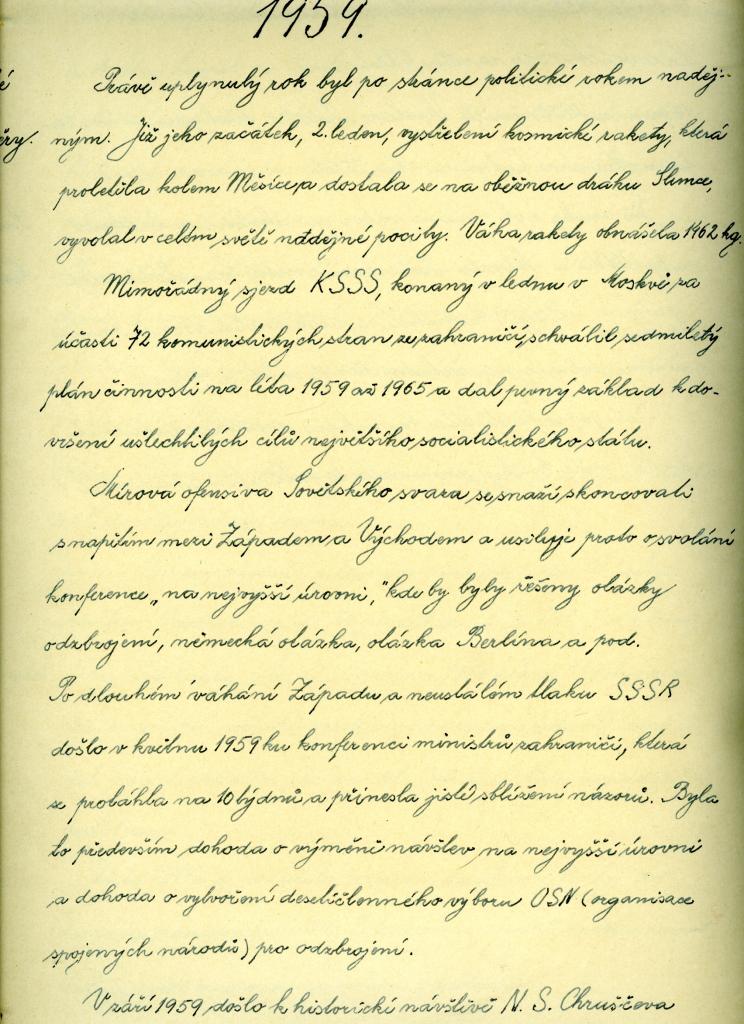 1959.
Právě uplynulý rok byl po stránce politické rokem naděj-
ným. Již jeho začátek, 2. leden, vystřelení kosmické rakety, která
proletěla kolem Měsíce, a dostala se na oběžnou dráhu Slunce,
vyvolal v celém světě naddějné pocity. Váha rakety obnášela 1462 kg.
Mimořádný sjezd KSSS, konaný v lednu v Moskvě za
účasti 72 komunistických stran ze zahraničí, schválil sedmiletý
plán činnosti na léta 1959 až 1965 a dal pevný základ k do-
vršení ušlechtilých cílů největšího socialistického státu.
Mírová ofensiva Sovětského svazu se snaží skoncovati
s napětím mezi Západem a Východem a usiluje proto o svolání
konference „na nejvyšší úrovni," kde by byly řešeny otázky
odzbrojení, německá otázka, otázka Berlína a pod.
Po dlouhém váhání Západu a neustálém tlaku SSSR
došlo v květnu 1959 ku konferenci ministrů zahraničí, která
se protáhla na 10 týdnů a přinesla jisté sblížení názorů. Byla
to především dohoda o výměně návštěv na nejvyšší úrovni
a dohoda o vytvoření desetičlenného výboru OSN (organisace
spojených národů) pro odzbrojení.
V září 1959 došlo k historické návštěvě N. S. Chruščeva